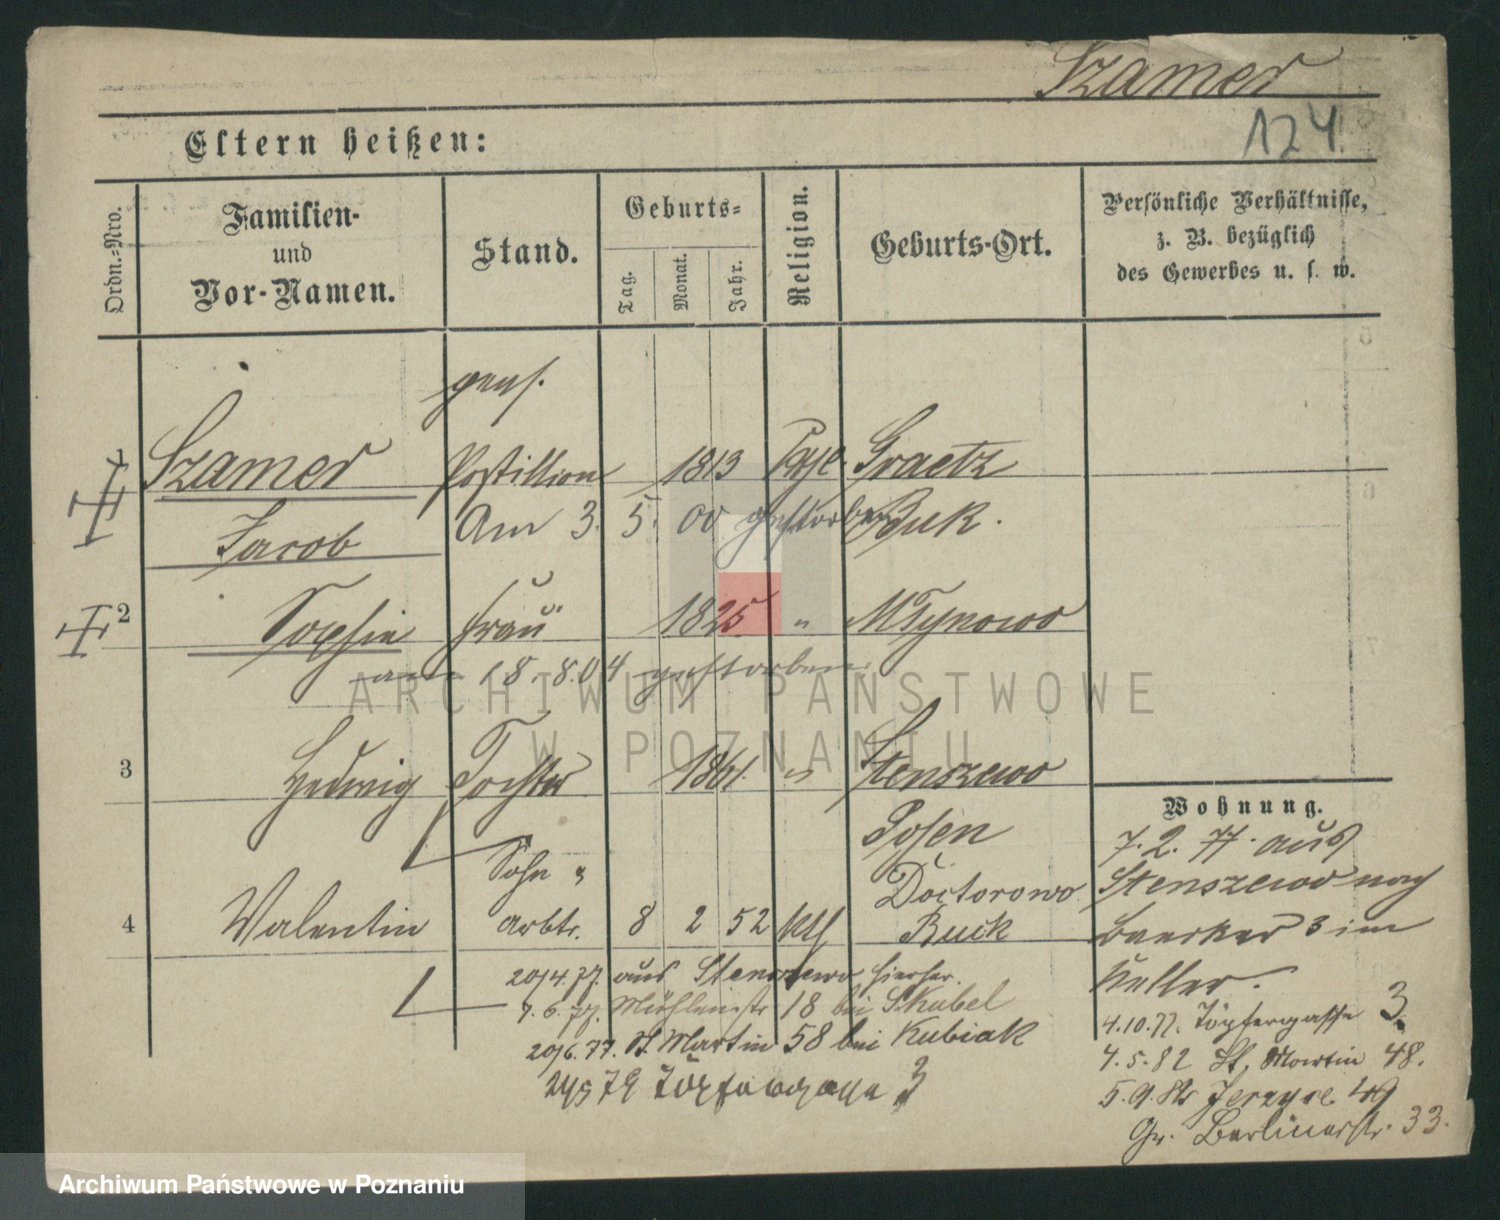 Szamer
124.
Eltern heißen:
Ordn.-Nro.
Familien-
und
Vor-Namen.
Stand.
Geburts-
Tag.
Monat.
Jahr.
Religion.
Geburts-Ort.
Persönliche Verhältnisse,
z. B. bezüglich
des Gewerbes u. s. w.
1 Szamer Postillion 1813 Graetz
Jacob Am 3. 5. 00 gestorben Buk.
2 Sophie Frau 1825 " Mlynowo
18.8.04 gestorben
3 Hedwig Tochter 1861. " Stenszewo
Posen
Sohn Doctorowo
4 Valentin arbtr. 8 2 52 kth Buck
20/4.77. aus Stenszewo hierher.
7.6.77. Mühlenstr 18 bei Skubel
20/6.77. St. Martin 58 bei Kubiak
24/5 79 Töpfergasse 3
Wohnung.
7.2.77. aus
Stenszewo nach
Baecker 3 im
Keller.
4.10.77. Töpfergasse 3.
4.5.82 St. Martin 48.
5.9.82 Jerzyce 49
Gr. Berlinerstr. 33.
ARCHIWUM PAŃSTWOWE
W POZNANIU
Archiwum Państwowe w Poznaniu